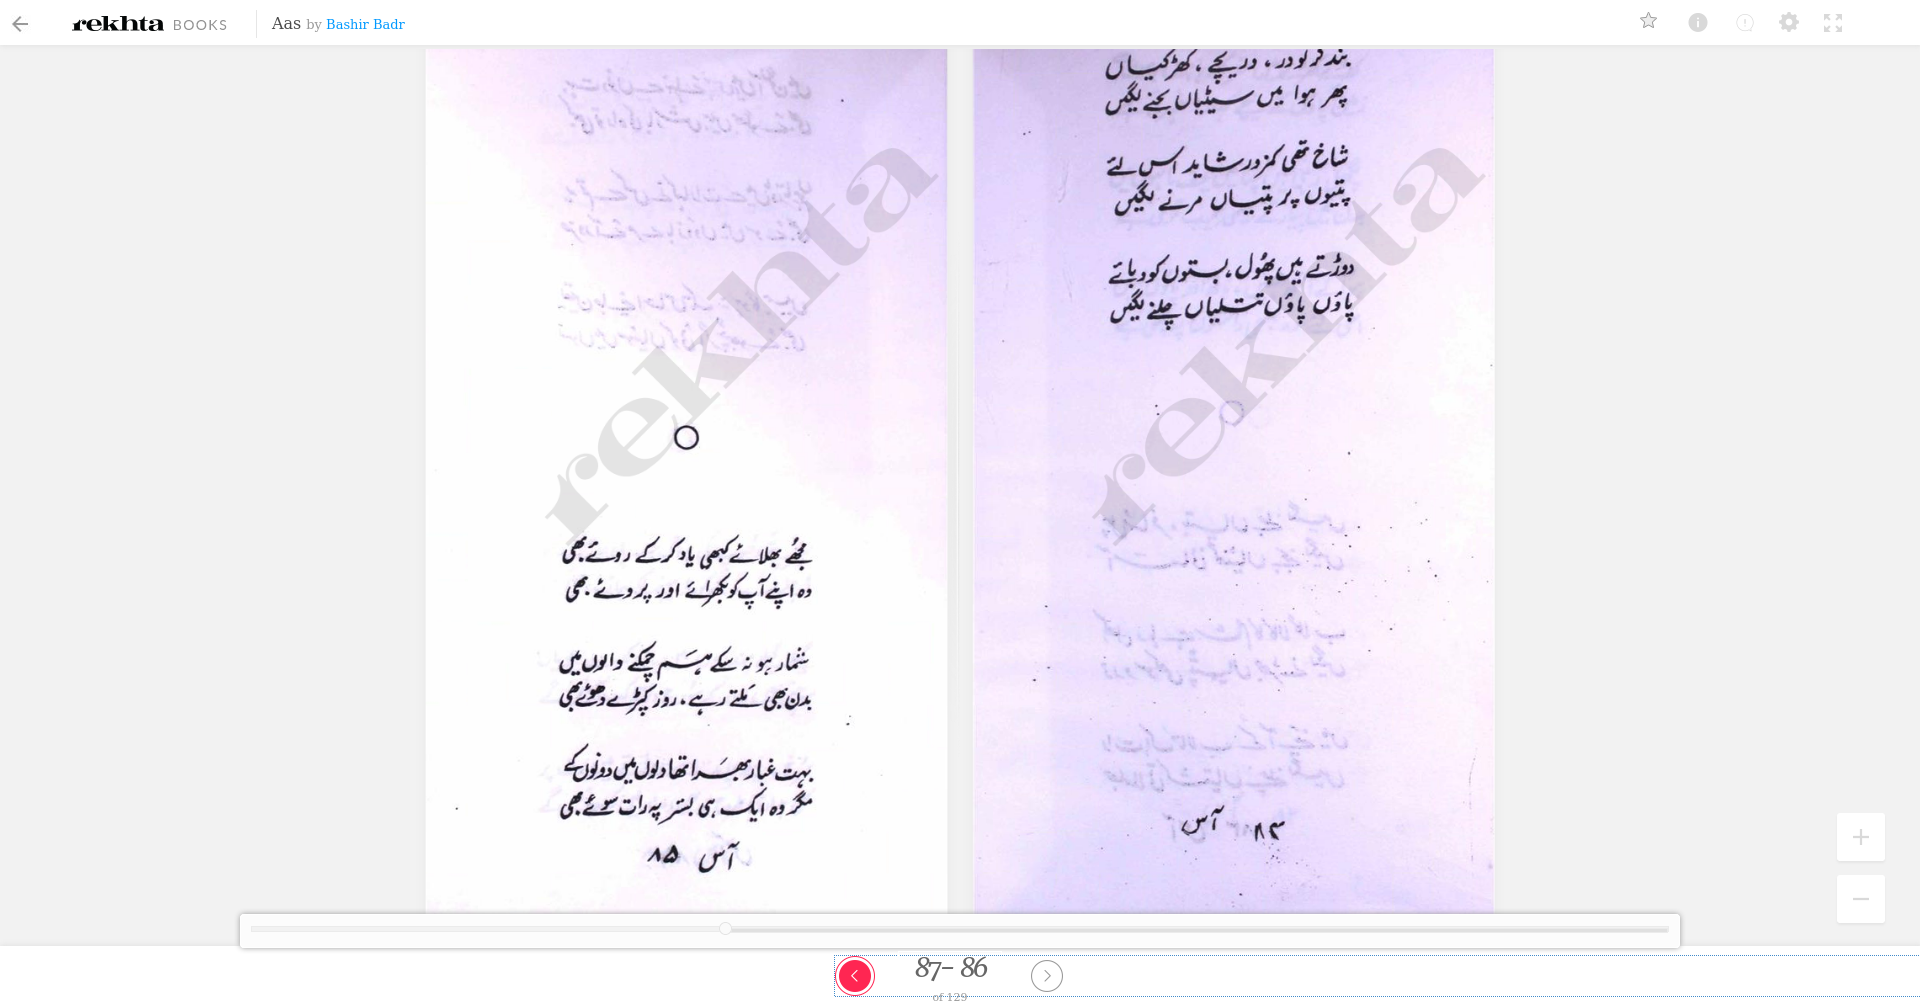 rekhta BOOKS
Aas by Bashir Badr
بند کر لو در، دریچے، کھڑکیاں
پھر ہوا میں سیٹیاں بجنے لگیں
شاخ تھی کمزور شاید اس لئے
پتیوں پر پتیاں مرنے لگیں
دوڑتے ہیں پھُول، بستوں کو دبائے
پاؤں پاؤں تتلیاں چلنے لگیں
۸۴ آس
rekhta
مجھے بھلائے کبھی یاد کر کے روئے بھی
وہ اپنے آپ کو بکھرائے اور پروئے بھی
شمار ہو نہ سکے ہم چمکنے والوں میں
بدن بھی مَلتے رہے، روز کپڑے دھوئے بھی
بہت غبار بھرا تھا دلوں میں دونوں کے
مگر وہ ایک ہی بستر پہ رات سوئے بھی
آس ۸۵
rekhta
87– 86
of 129